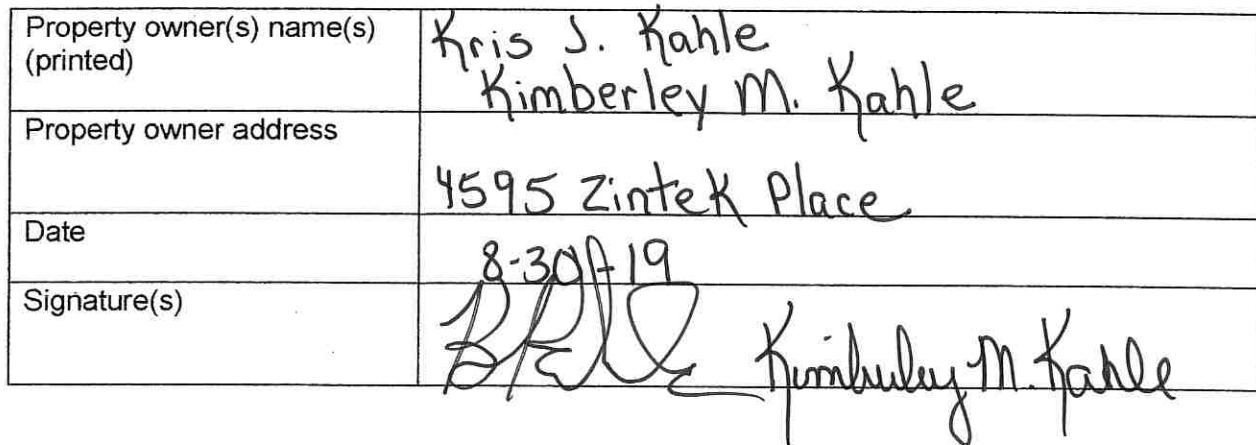 Property owner(s) name(s)
(printed)
Kris J. Kahle
Kimberley M. Kahle
Property owner address
4595 Zintek Place
Date
8-30-19
Signature(s)
Kimberley M. Kahle